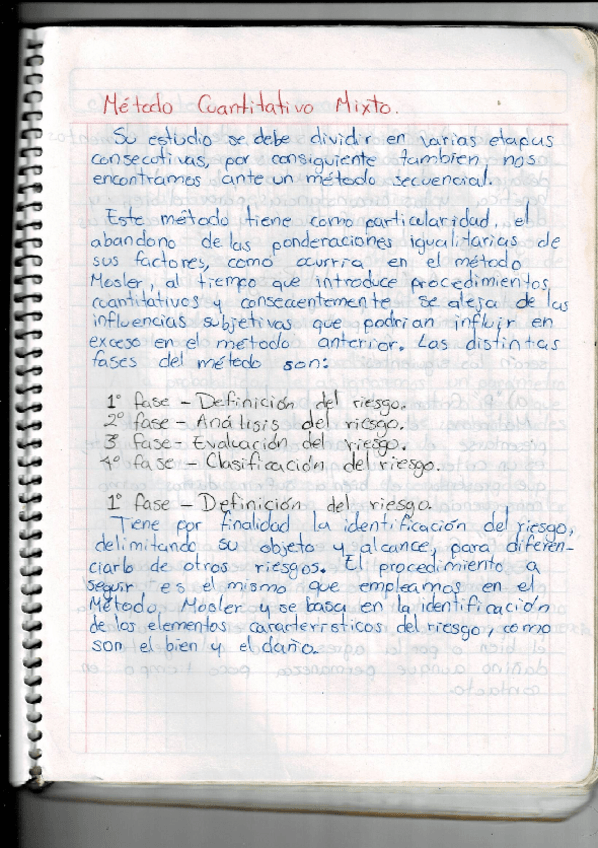 Método Cuantitativo Mixto.
Su estudio se debe dividir en varias etapas
consecutivas, por consiguiente tambien nos
encontramos ante un método secuencial.
Este método tiene como particularidad, el
abandono de las ponderaciones igualitarias de
sus factores, como ocurria en el método
Mosler, al tiempo que introduce procedimientos
cuantitativos y consecuentemente se aleja de las
influencias subjetivas que podrian influir en
exceso en el método anterior. Las distintas
fases del método son:
1° fase - Definición del riesgo.
2° fase - Análisis del riesgo.
3° fase - Evaluación del riesgo.
4° fase - Clasificación del riesgo.
1° fase - Definición del riesgo.
Tiene por finalidad la identificación del riesgo,
delimitando su objeto y alcance, para diferen-
ciarlo de otros riesgos. El procedimiento a
seguir es el mismo que empleamos en el
Método, Mosler y se basa en la identificación
de los elementos caracteristicos del riesgo, como
son el bien y el daño.